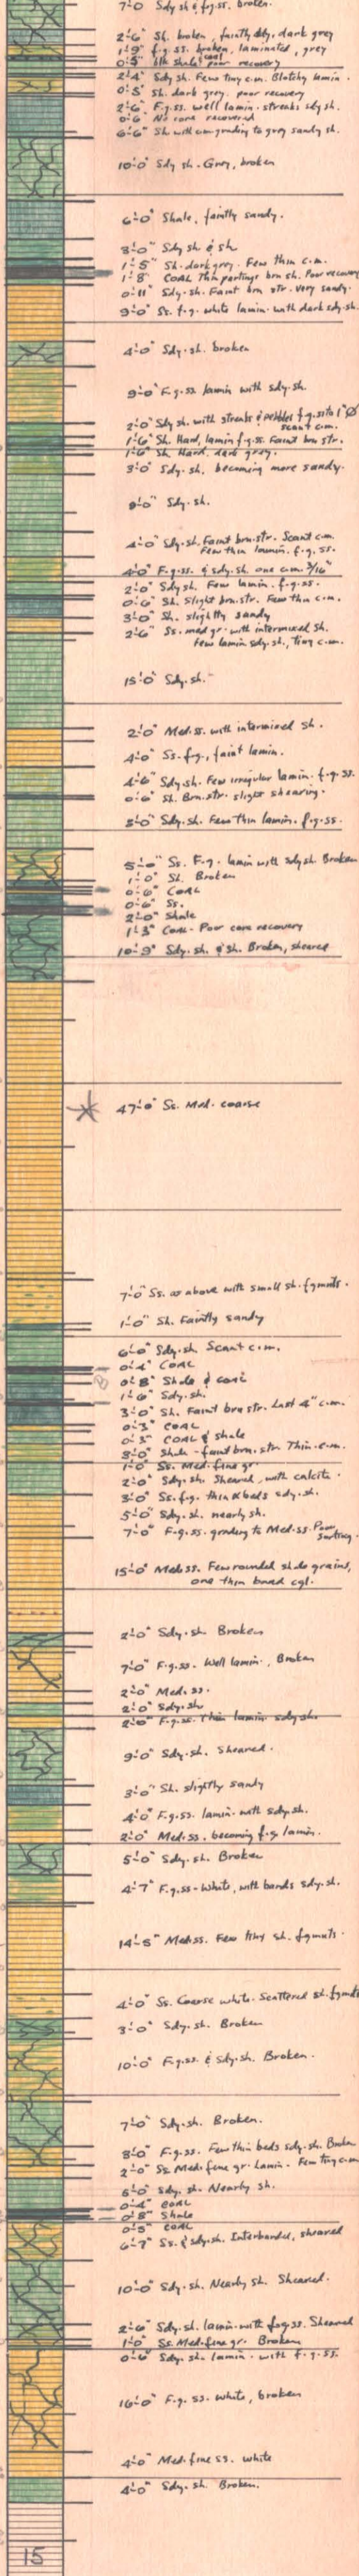 7'-0" Sdy sh & f.g.ss. broken.
2'-6" Sh. broken, faintly sdy, dark grey
1'-9" f.g.ss. broken, laminated, grey
0'-5" blk shale coal poor recovery
2'-4" Sdy sh. Few tiny c.m. Blotchy lamin.
0'-5" Sh. dark grey. poor recovery
2'-6" F.g.ss. well lamin. streaks sdy sh.
0'-6" No core recovered
6'-6" Sh. with c.m. grading to grey sandy sh.
10'-0" Sdy sh. Grey, broken
6'-0" Shale, faintly sandy.
8'-0" Sdy sh & sh
1'-5" Sh. dark grey. Few thin c.m.
1'-8" COAL Thin partings brn sh. Poor recovery
0'-11" Sdy. sh. Faint brn str. very sandy.
9'-0" Ss. f.g. white lamin. with dark sdy. sh.
4'-0" Sdy. sh. broken
9'-0" F.g.ss lamin with sdy. sh.
2'-0" Sdy sh. with streaks & pebbles f.g.ss to 1"Ø
scant c.m.
1'-6" Sh. Hard, lamin f.g.ss. Faint brn str.
1'-6" Sh. Hard, dark grey.
3'-0" Sdy. sh. becoming more sandy.
9'-0" Sdy. sh.
4'-0" Sdy. sh. Faint brn. str. Scant c.m.
Few thin lamin. f.g. ss.
4'-0" F.g.ss. & sdy. sh. one c.m. 3/16"
2'-0" Sdy sh. Few lamin. f.g.ss.
0'-6" Sh. Slight brn. str. Few thin c.m.
3'-0" Sh. slightly sandy
2'-6" Ss. med gr. with intermixed sh.
Few lamin sdy. sh., tiny c.m.
15'-0" Sdy. sh.
2'-0" Med. ss. with intermixed sh.
4'-0" Ss. f.g., faint lamin.
4'-6" Sdy. sh. Few irregular lamin. f.g. ss.
0'-6" Sh. Brn. str. slight shearing.
5'-0" Sdy. sh. Few thin lamin. f.g. ss.
5'-0" Ss. F.g. lamin with sdy sh. Broken
1'-0" Sh. Broken
0'-6" COAL
0'-6" Ss.
2'-0" Shale
1'-3" COAL - Poor core recovery
10'-9" Sdy. sh. & sh. Broken, sheared
47'-0" Ss. Med. coarse
7'-0" Ss. as above with small sh. fgmnts.
1'-0" Sh. Faintly sandy
6'-0" Sdy. sh. Scant c.m.
0'-4" COAL
0'-8" Shale & coal
1'-6" Sdy. sh.
3'-0" Sh. Faint brn str. Last 4" c.m.
0'-3" COAL
0'-3" COAL & shale
8'-0" Shale - faint brn. str. Thin c.m.
1'-0" Ss. Med. fine gr.
2'-0" Sdy. sh. Sheared, with calcite.
3'-0" Ss. f.g. thin x beds sdy. sh.
5'-0" Sdy. sh. nearly sh.
7'-0" F.g.ss. grading to Med. ss. Poor
sorting.
15'-0" Med. ss. Few rounded shale grains,
one thin band cgl.
2'-0" Sdy. sh. Broken
7'-0" F.g.ss. Well lamin., Broken
2'-0" Med. ss.
2'-0" Sdy. sh.
2'-0" F.g. ss. Thin lamin. sdy. sh.
9'-0" Sdy. sh. Sheared.
3'-0" Sh. slightly sandy
4'-0" F.g.ss. lamin. with sdy. sh.
2'-0" Med. ss. becoming f.g. lamin.
5'-0" Sdy. sh. Broken
4'-7" F.g.ss - White, with bands sdy. sh.
14'-5" Med. ss. Few tiny sh. fgmnts.
4'-0" Ss. Coarse white. Scattered sh. fgmnts
3'-0" Sdy. sh. Broken
10'-0" F.g.ss. & Sdy. sh. Broken.
7'-0" Sdy. sh. Broken.
8'-0" F.g.ss. Few thin beds sdy. sh. Broken
2'-0" Ss. Med. fine gr. Lamin. Few tiny c.m.
6'-0" Sdy. sh. Nearly sh.
0'-4" COAL
0'-8" Shale
0'-5" COAL
6'-7" Ss. & sdy. sh. Interbanded, sheared
10'-0" Sdy. sh. Nearly sh. Sheared.
2'-6" Sdy. sh. lamin. with f.g.ss. Sheared
1'-0" Ss. Med. fine gr. Broken
0'-6" Sdy. sh. lamin. with f.g.ss.
16'-0" F.g. ss. white, broken
4'-0" Med. fine ss. white
4'-0" Sdy. sh. Broken.
15